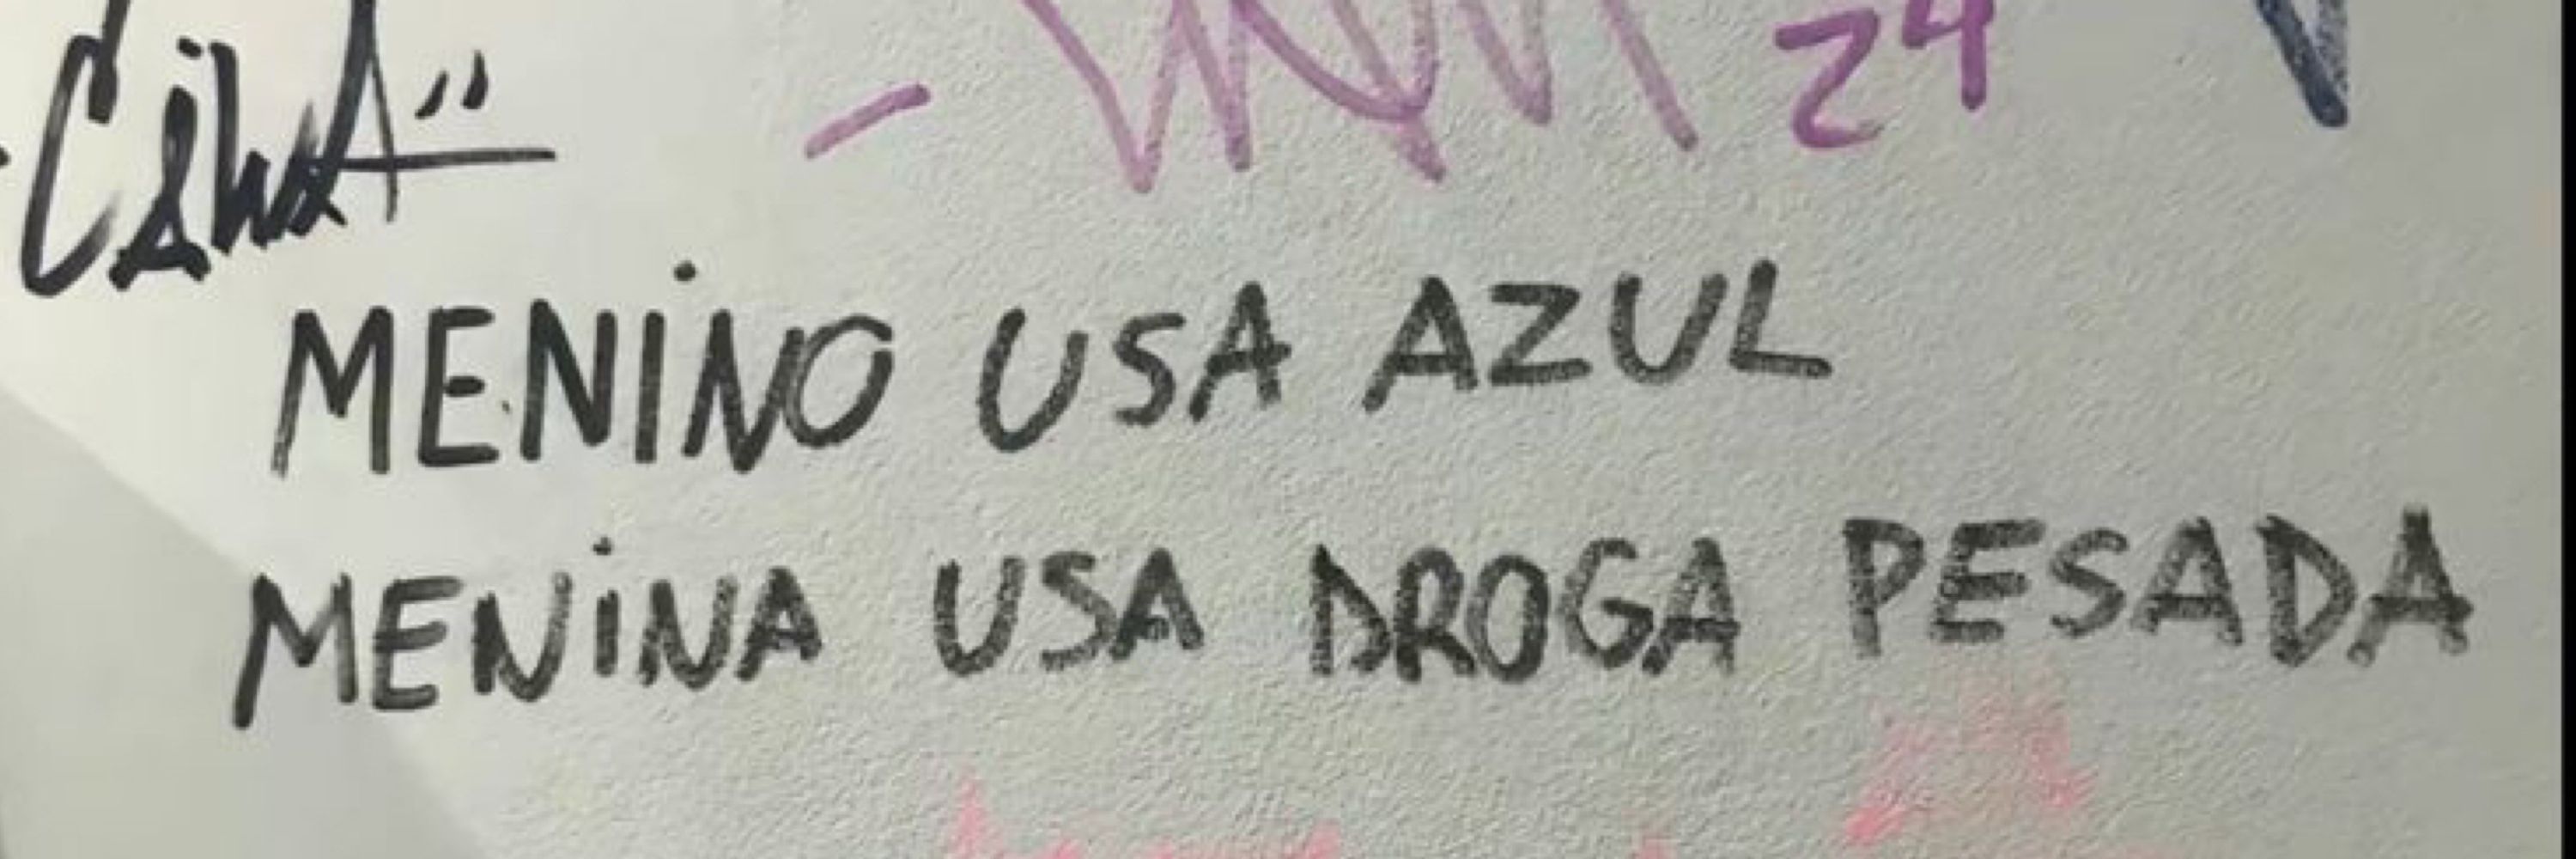 24
MENINO USA AZUL
MENINA USA DROGA PESADA